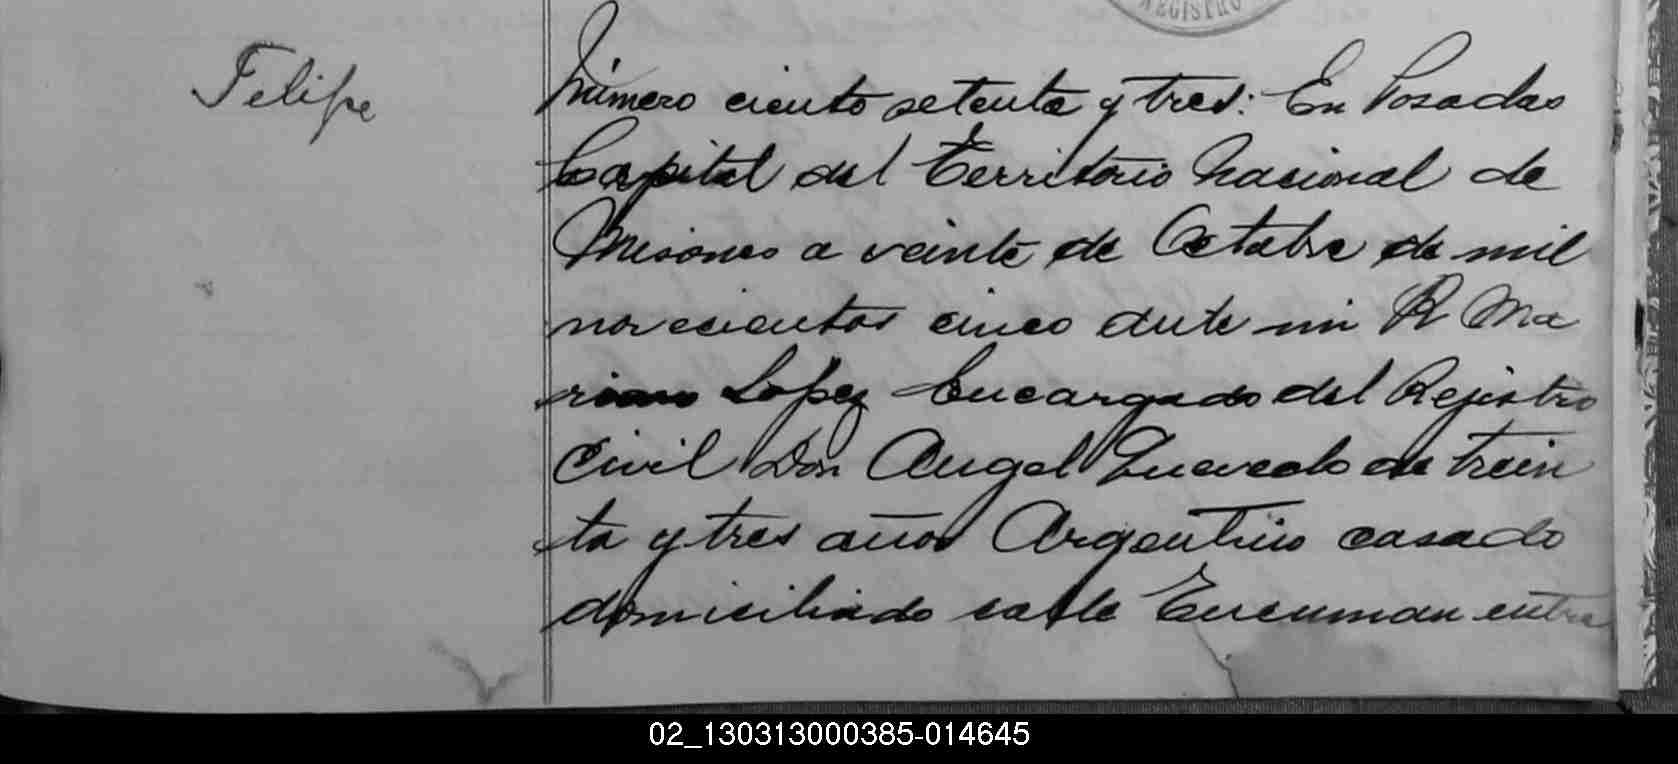 REGISTRO
Felipe
Número ciento setenta y tres: En Posadas
Capital del Territorio Nacional de
Misiones a veinte de Octubre de mil
novecientos cinco ante mi R Ma
riano Lopez Encargado del Rejistro
Civil Don Angel Quevedo de trein
ta y tres años Argentino casado
domiciliado calle Tucuman entre
02_130313000385-014645